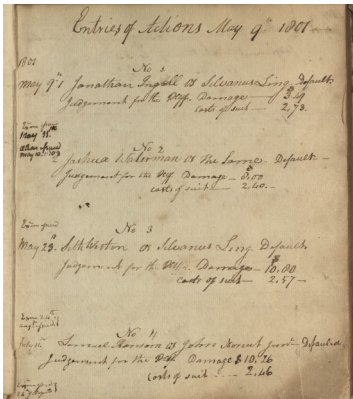 Entries of Actions May 9th 1801
1801
No 1
May 9th Jonathan Ingell vs Silvanus Ling. Default
Judgement for the Plff. Damage — $ 3.49
Costs of suit — 2.73.
May
No 2
Joshua Waterman vs the Same. Default —
Judgement for the Plff Damage — 8.00
costs of suit — 2.40. —
No 3
May 23d Seth Weston vs Silvanus Ling Default
Judgement for the Plff. Damage — $10.00
costs of suit — 2.57 —
No 4
July Samuel vs John Junr — Defaulted
Judgement for the Plff. Damage $ 10.26
Costs of suit — 2.46